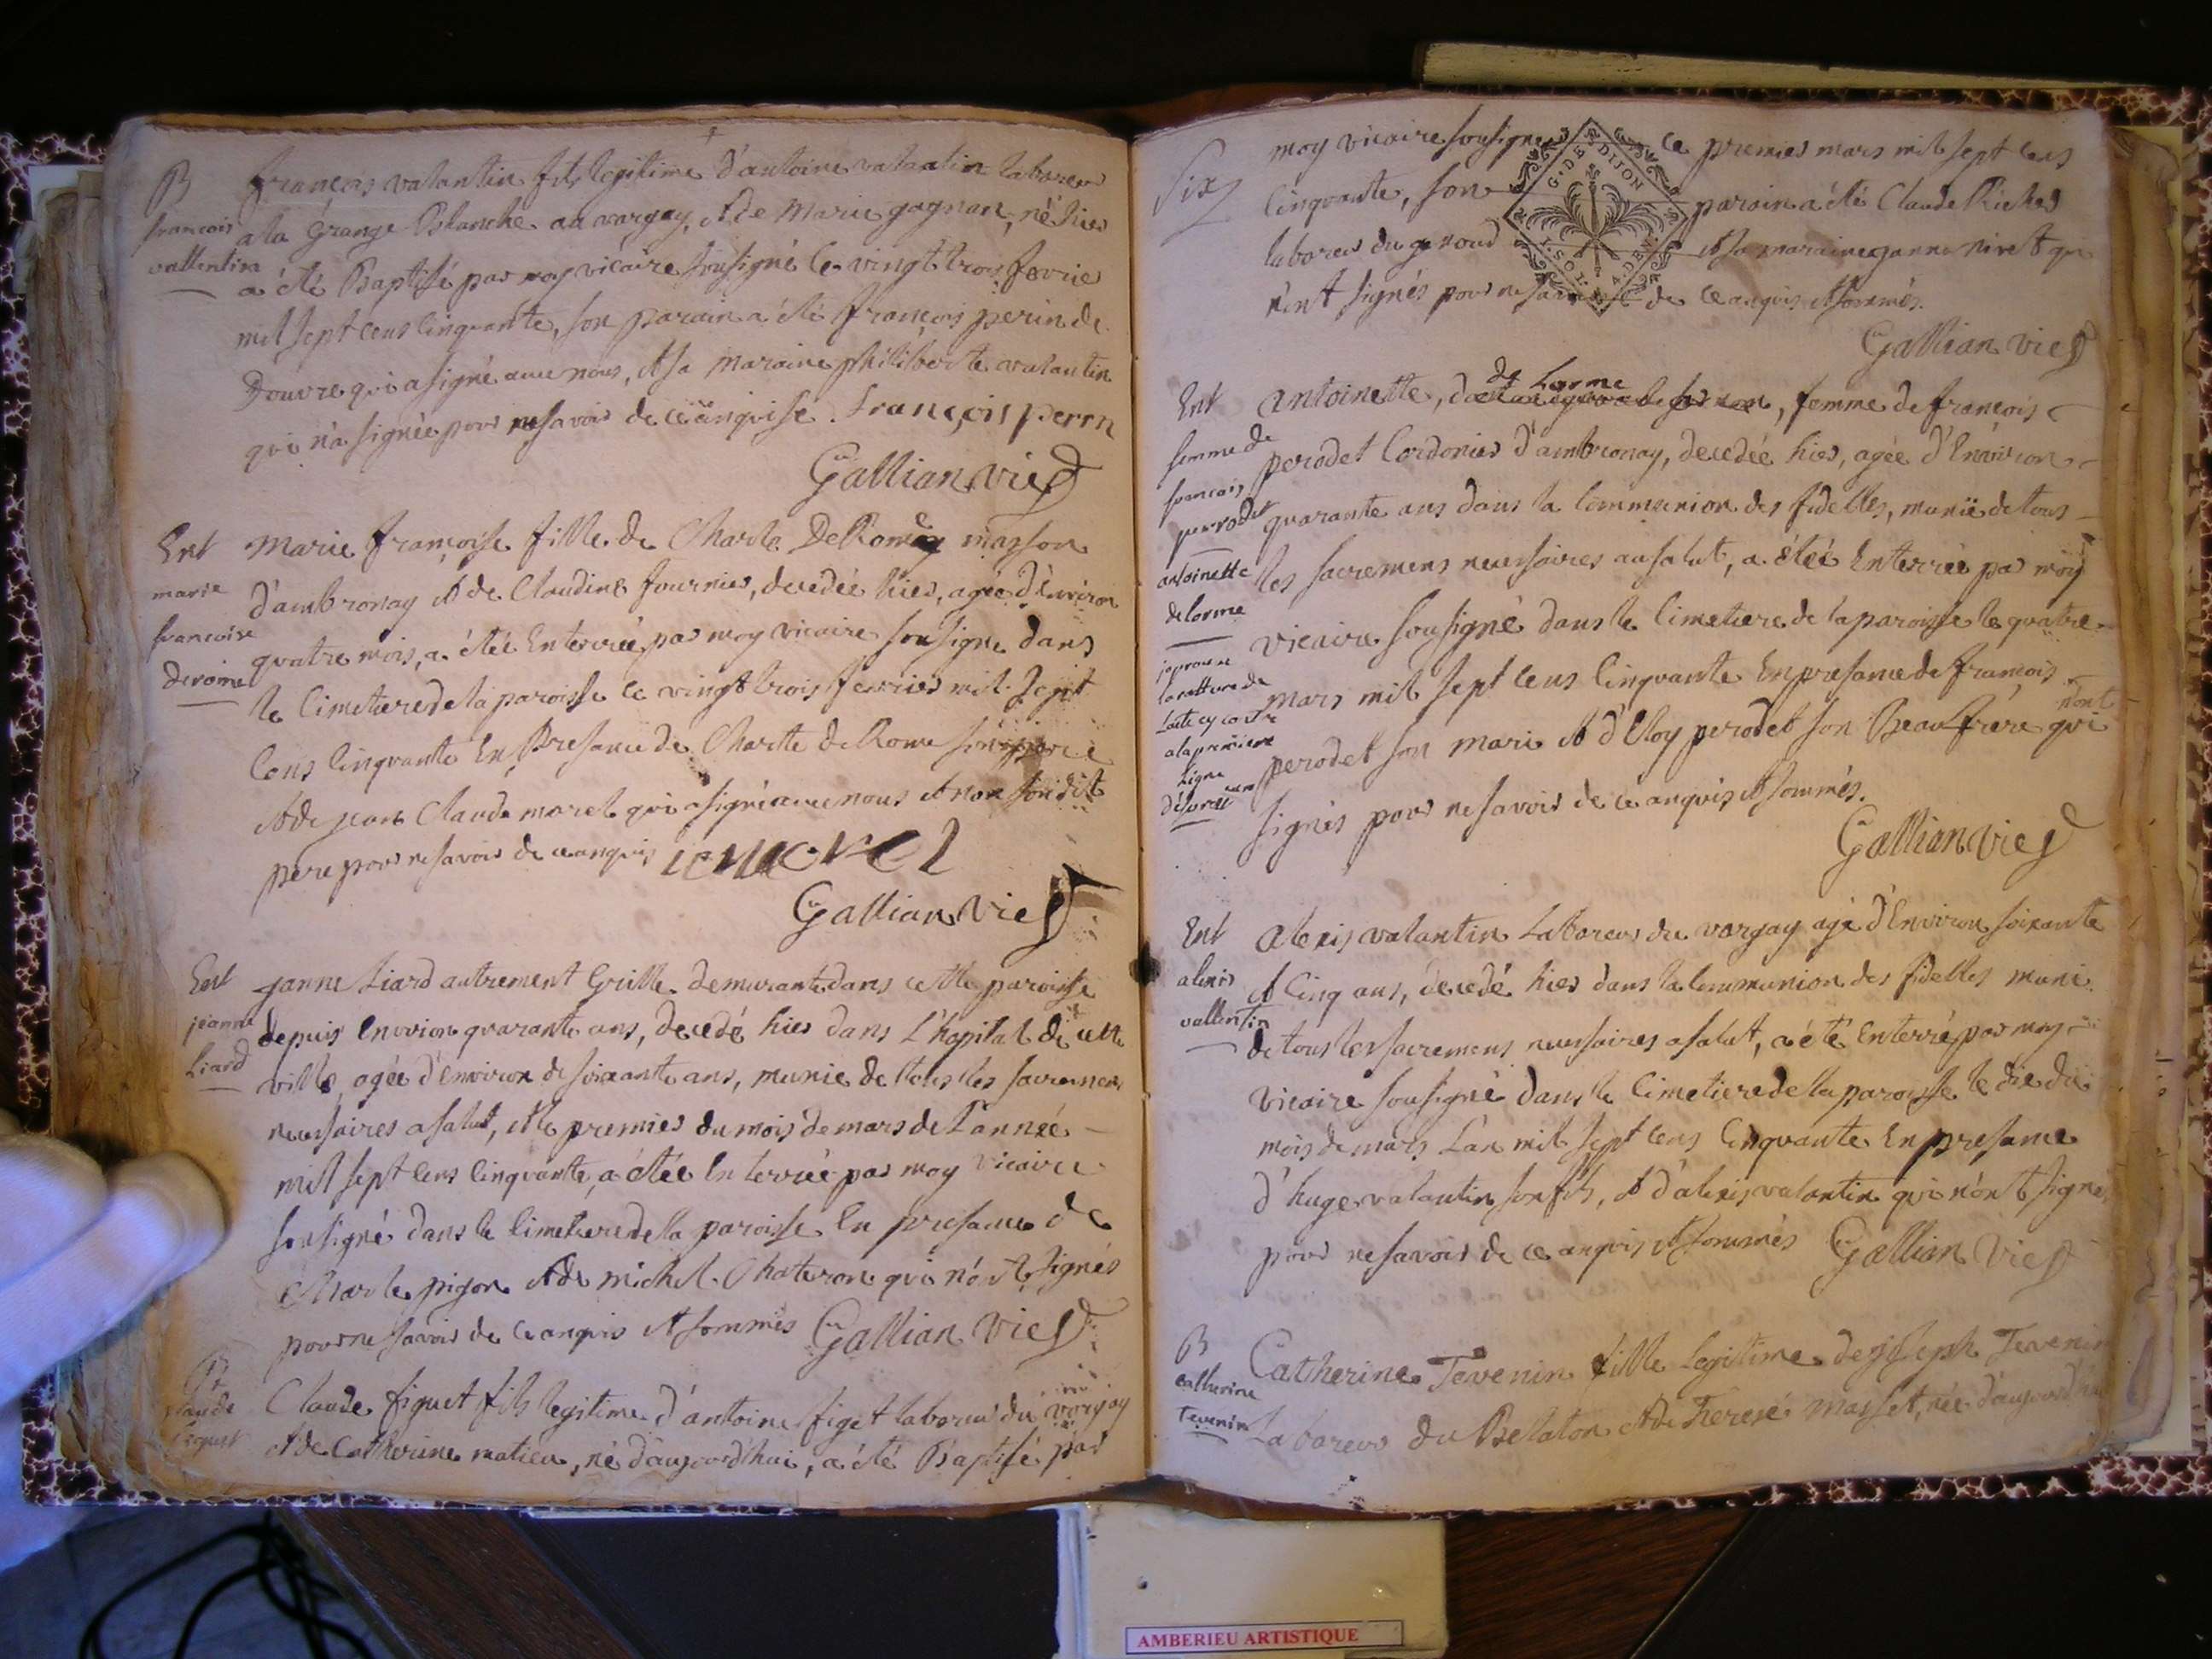 B
francois
vallentin
francois valantin fils legitime d'antoine valantin laboreur
a la Grange Blanche au vorgey, et de Marie gagnon, né hier
a été Baptisé par moy vicaire sousigné le vingt trois fevrier
mil sept cens cinquante, son parain a été françois perin de
Douvre qui a signé avec nous, et sa maraine philiberte valantin
qui n'a signée pour ne savoir de ce anquise. françois perrn
Gallian vic
Ent
marie
francoise
derome
Marie françoise fille de Charle DeRome masson
d'ambronay et de Claudine fournier, decedée hier, agée d'environ
quatre mois, a étée Enterrée par moy vicaire sousigné dans
le Cimetiere de la paroisse le vingt trois fevrier mil sept
cens cinquante En Presance de Charle de Rome son pere
et de jean Claude morel qui a signé avec nous et non son dit
pere pour ne savoir de ce anquis
Gallian vic
Ent
jeanne
Liard
janne Liard autrement Grille demurante dans cette paroisse
depuis environ quarante ans, decedé hier dans l'hopital de cette
ville, agée d'environ de soixante ans, munie de tous les sacremens
necessaires a salut, et le premier du mois de mars de l'année
mil sept cens cinquante, a étée Enterrée par moy vicaire
sousigné dans le cimetiere de la paroisse En presance de
Charle pigon et de michel Chateron qui n'ont signés
pour ne savoir de ce anquis et sommés Gallian vic
B
claude
figuet
Claude figuet fils legitime d'antoine figet laboreur du vorgey
et de Catherine matieu, né d'aujourd'hui, a été Baptisé par
Six
moy vicaire sousigné le premier mars mil sept cens
cinquante, son parain a été Claude Riched
laboreur du genoud et sa maraine janne nivet qui
n'ont signés pour ne savoir de ce anquis et sommés.
G. DE DIJON
SOL
Gallian vic
Ent
femme de
francois
perrodet
antoinette
delorme
de Lorme
antoinette, femme de françois
perodet Cordonier d'ambronay, decedée hier, agée d'Environ
quarante ans dans la Communion des fidelles, munië de tous
les sacremens necessaires au salut, a étée Enterrée par moy
vicaire sousigné dans le Cimetiere de la paroisse le quatre
mars mil sept cens cinquante En presance de françois
perodet son mari et d'Eloy perodet son Beaufrére qui n'ont
signés pour ne savoir de ce anquis et sommés.
japrouve
la ratture de
l'acte cy contre
a la premiere
Ligne
Gallian vic
Ent
alexis
vallentin
Alexis valantin Laboreur du vorgey agé d'Environ soixante
et cinq ans, decedé hier dans la Communion des fidelles muni
de tous les sacremens necessaires a salut, a été Enterré par moy
vicaire sousigné dans le Cimetiere de la paroisse le die du
mois de mars l'an mil sept cens cinquante En presance
d'huge valantin son fils, et d'alexis valantin qui n'ont signé
pour ne savoir de ce anquis et sommés Gallian vic
B
catherine
Tevenin
Catherine Tevenin fille legitime de joseph Tevenin
Laboreur du Belaton et de Therese masset, née d'aujourd'hui
AMBERIEU ARTISTIQUE